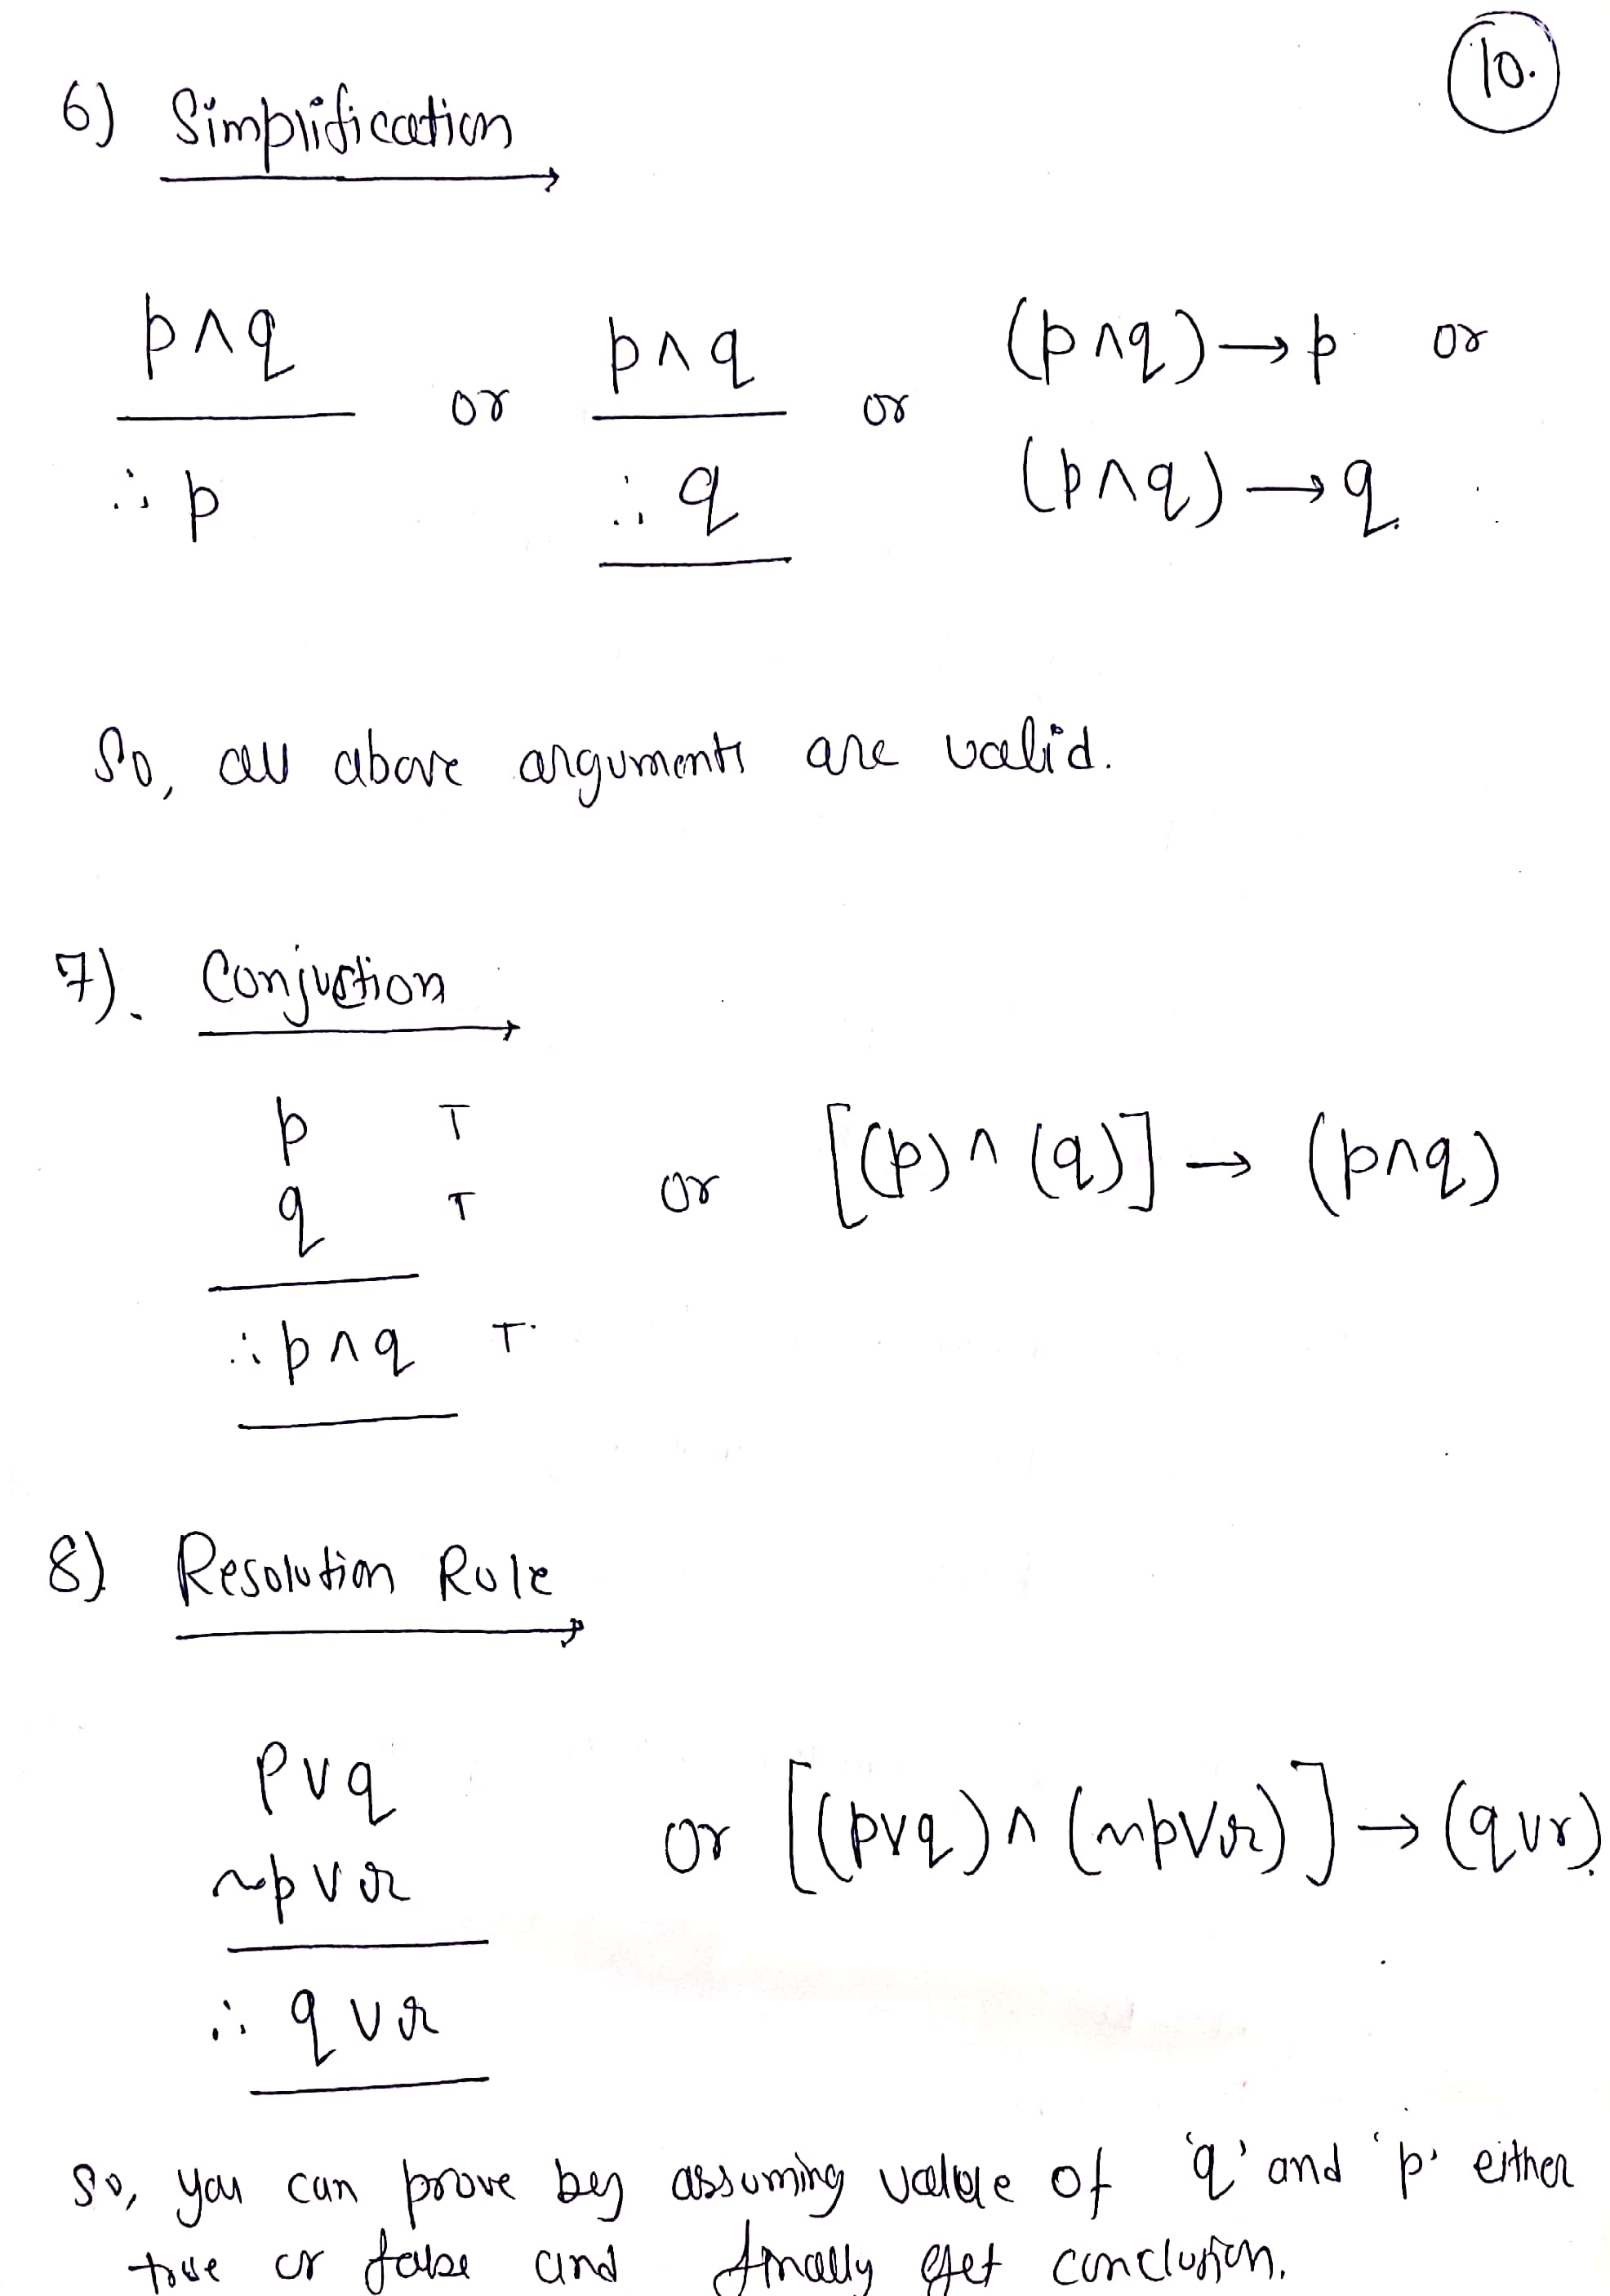 10.
6) Simplification
p∧q or p∧q or (p∧q)→p or
∴ p ∴ q (p∧q)→q.
So, all above arguments are valid.
7). Conjuction
p T
q T or [(p)∧(q)] → (p∧q)
∴ p∧q T.
8) Resolution Rule
p∨q
~p∨r or [(p∨q)∧(~p∨r)]→(q∨r).
∴ q∨r
So, you can prove by assuming value of 'q' and 'p' either
true or false and finally get conclusion.